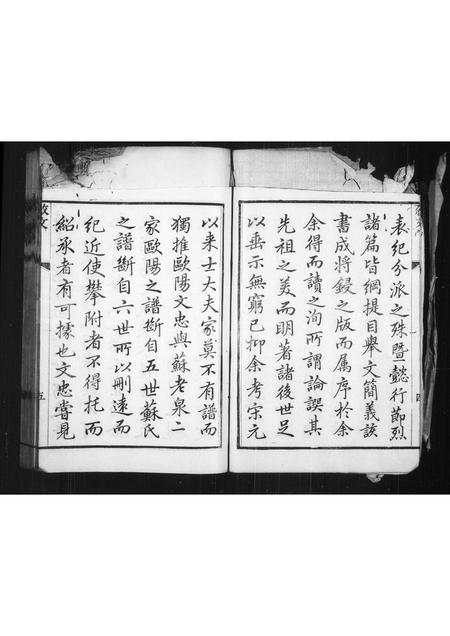 表紀分派之殊暨懿行節烈
諸篇皆綱提目舉文簡義該
書成將鋟之版而属序於余
余得而讀之洵所謂論譔其
先祖之美而明著諸後世足
以垂示無窮已抑余考宗元
以来士大夫家莫不有譜而
獨推歐陽文忠與蘇老泉二
家歐陽之譜斷自五世蘇氏
之譜斷自六世所以刪遠而
紀近使攀附者不得托而
紹承者有可據也文忠嘗見
五